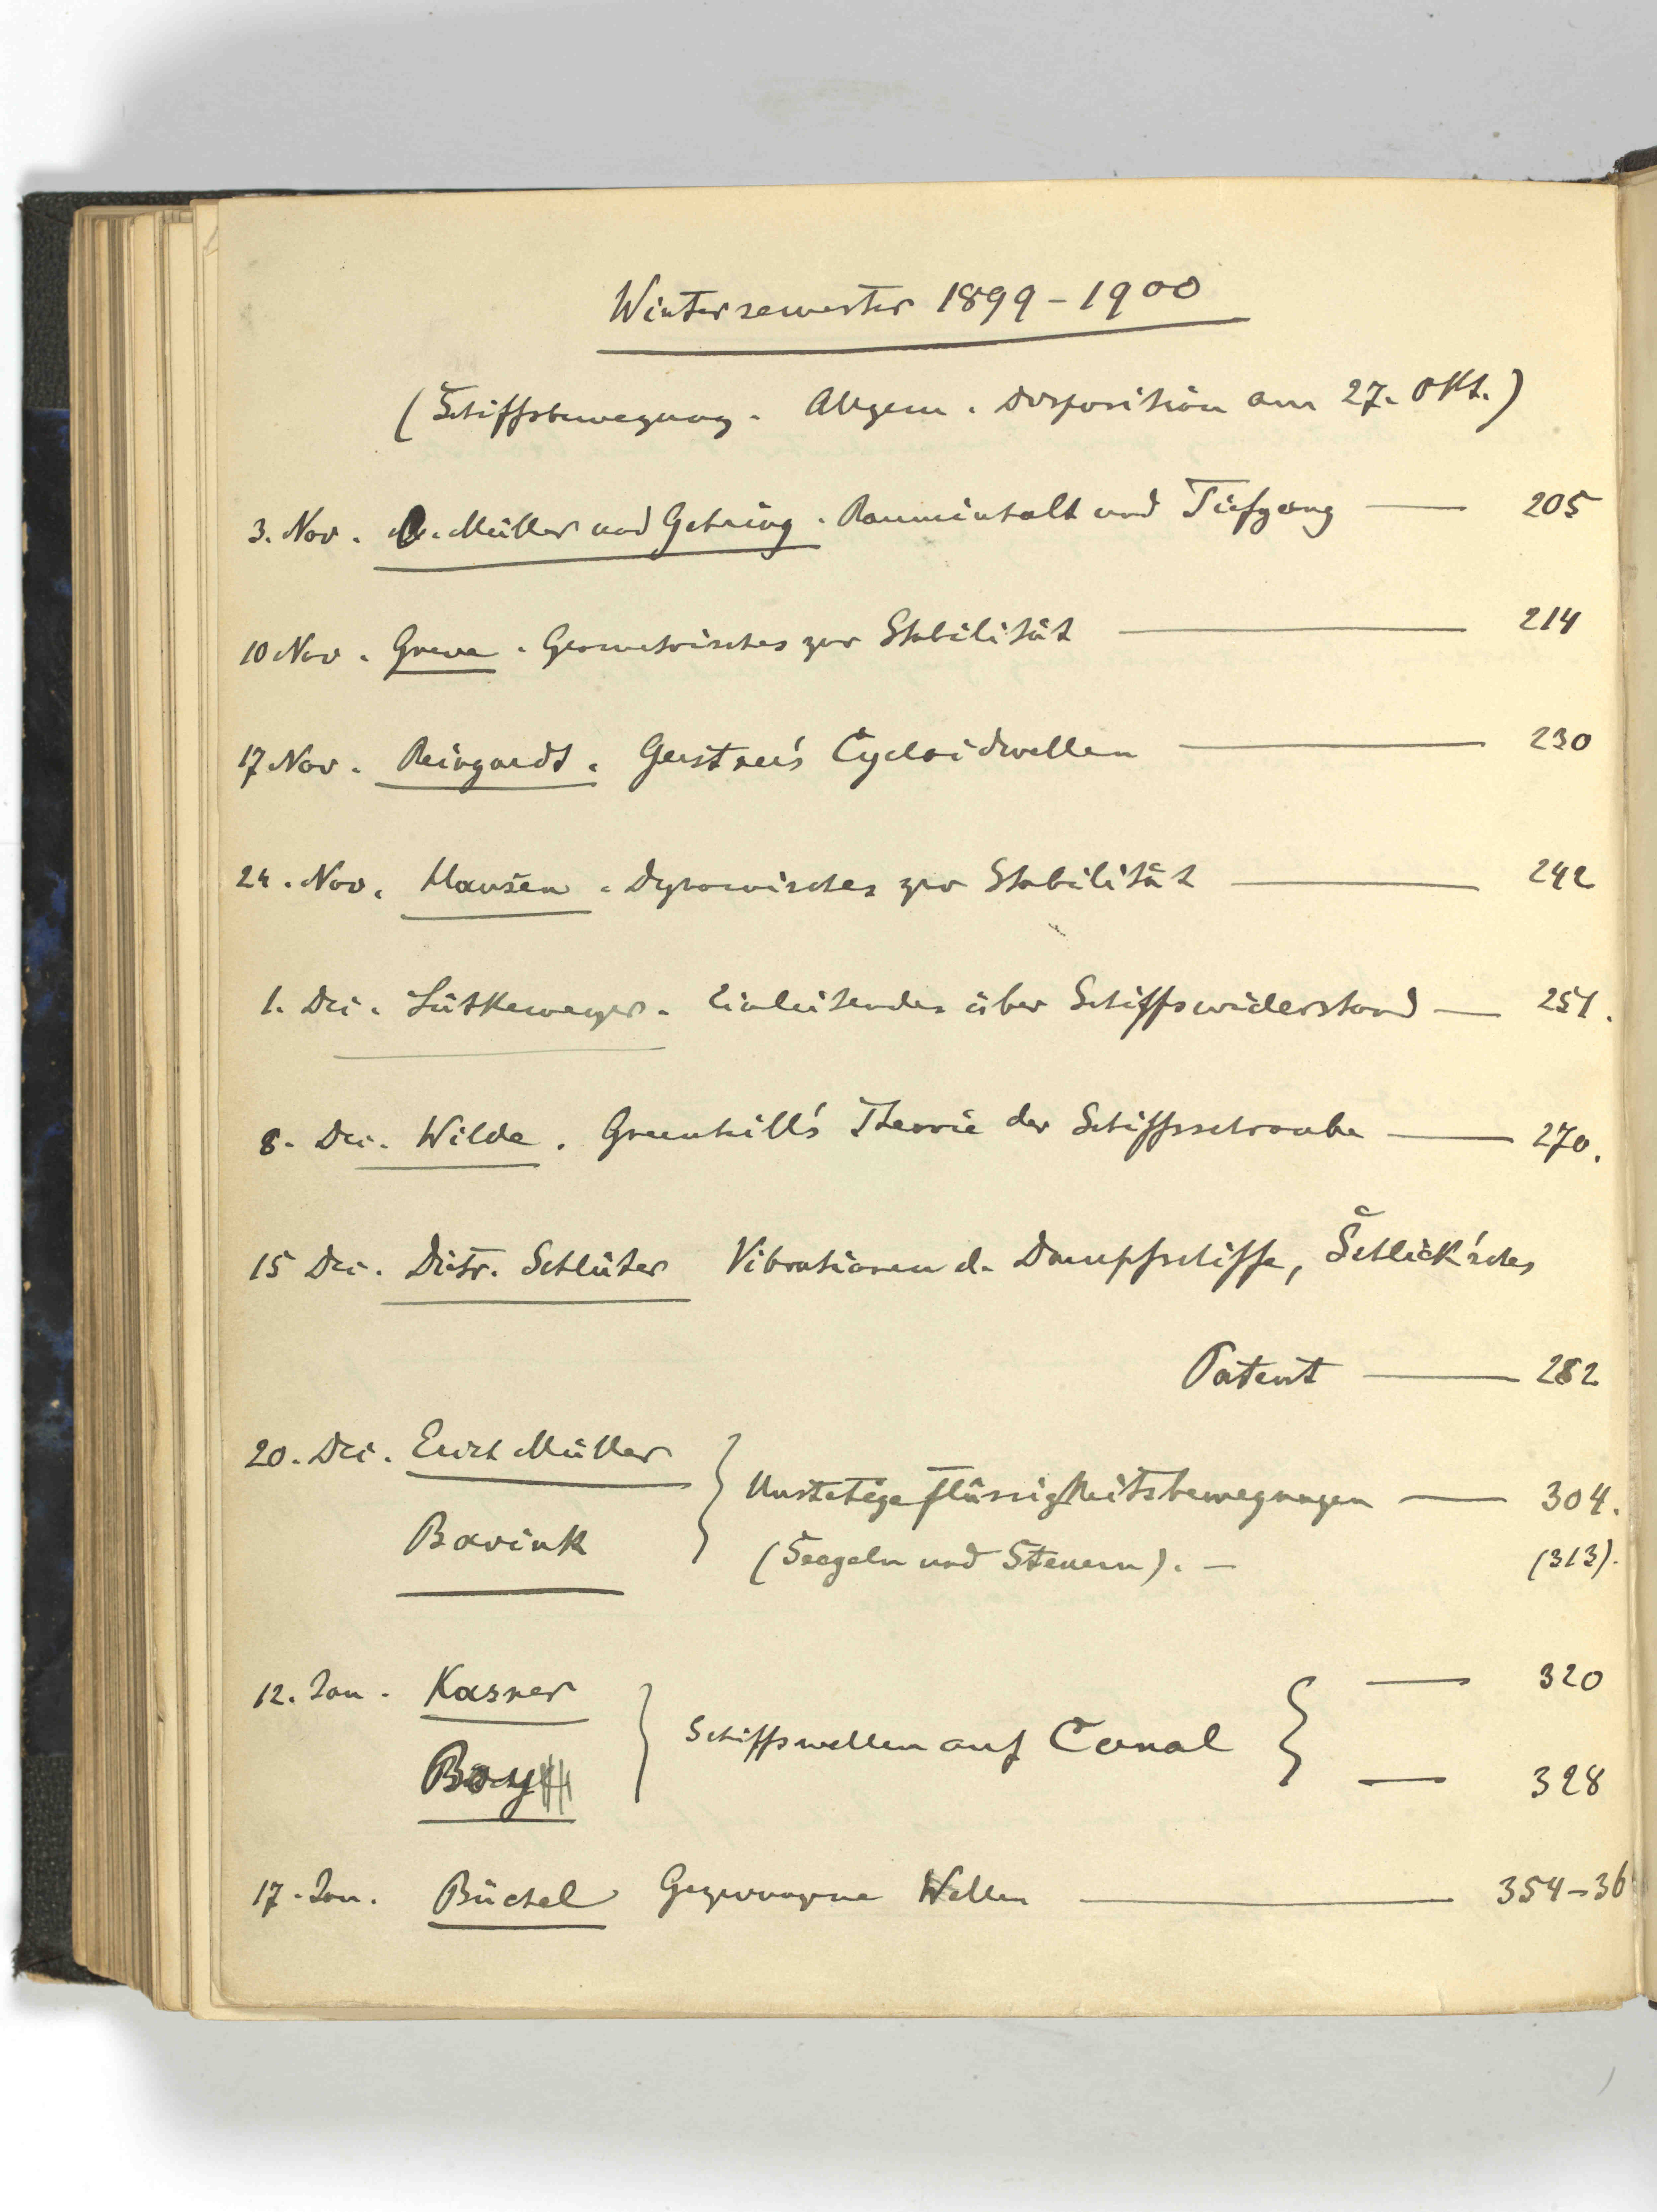 Wintersemester 1899-1900
(Schiffsbewegung. Allgem. Disposition am 27. Okt.)
3. Nov. Müller und Gehring. Rauminhalt und Tiefgang — 205
10 Nov. Greve. Geometrisches zur Stabilität — 214
17 Nov. Reingardt. Gerstner's Cycloidwellen — 230
24. Nov. Hansen. Dynamisches zur Stabilität — 242
1. Dec. Lütkemeyer. Einleitendes über Schiffswiderstand — 251.
8. Dec. Wilde. Greenhill's Theorie der Schiffsschraube — 270.
15 Dec. Schlüter Vibrationen d. Dampfschiffe, Schlick'sches
Patent — 282
20. Dec. Erich Müller
Bavink
Unstetige Flüssigkeitsbewegungen — 304.
(Seegeln und Steuern). — (313).
12. Jan. Kasner — 320
Boy — 328
Schiffswellen auf Canal
17. Jan. Büchel Gezwungene Wellen — 354-36